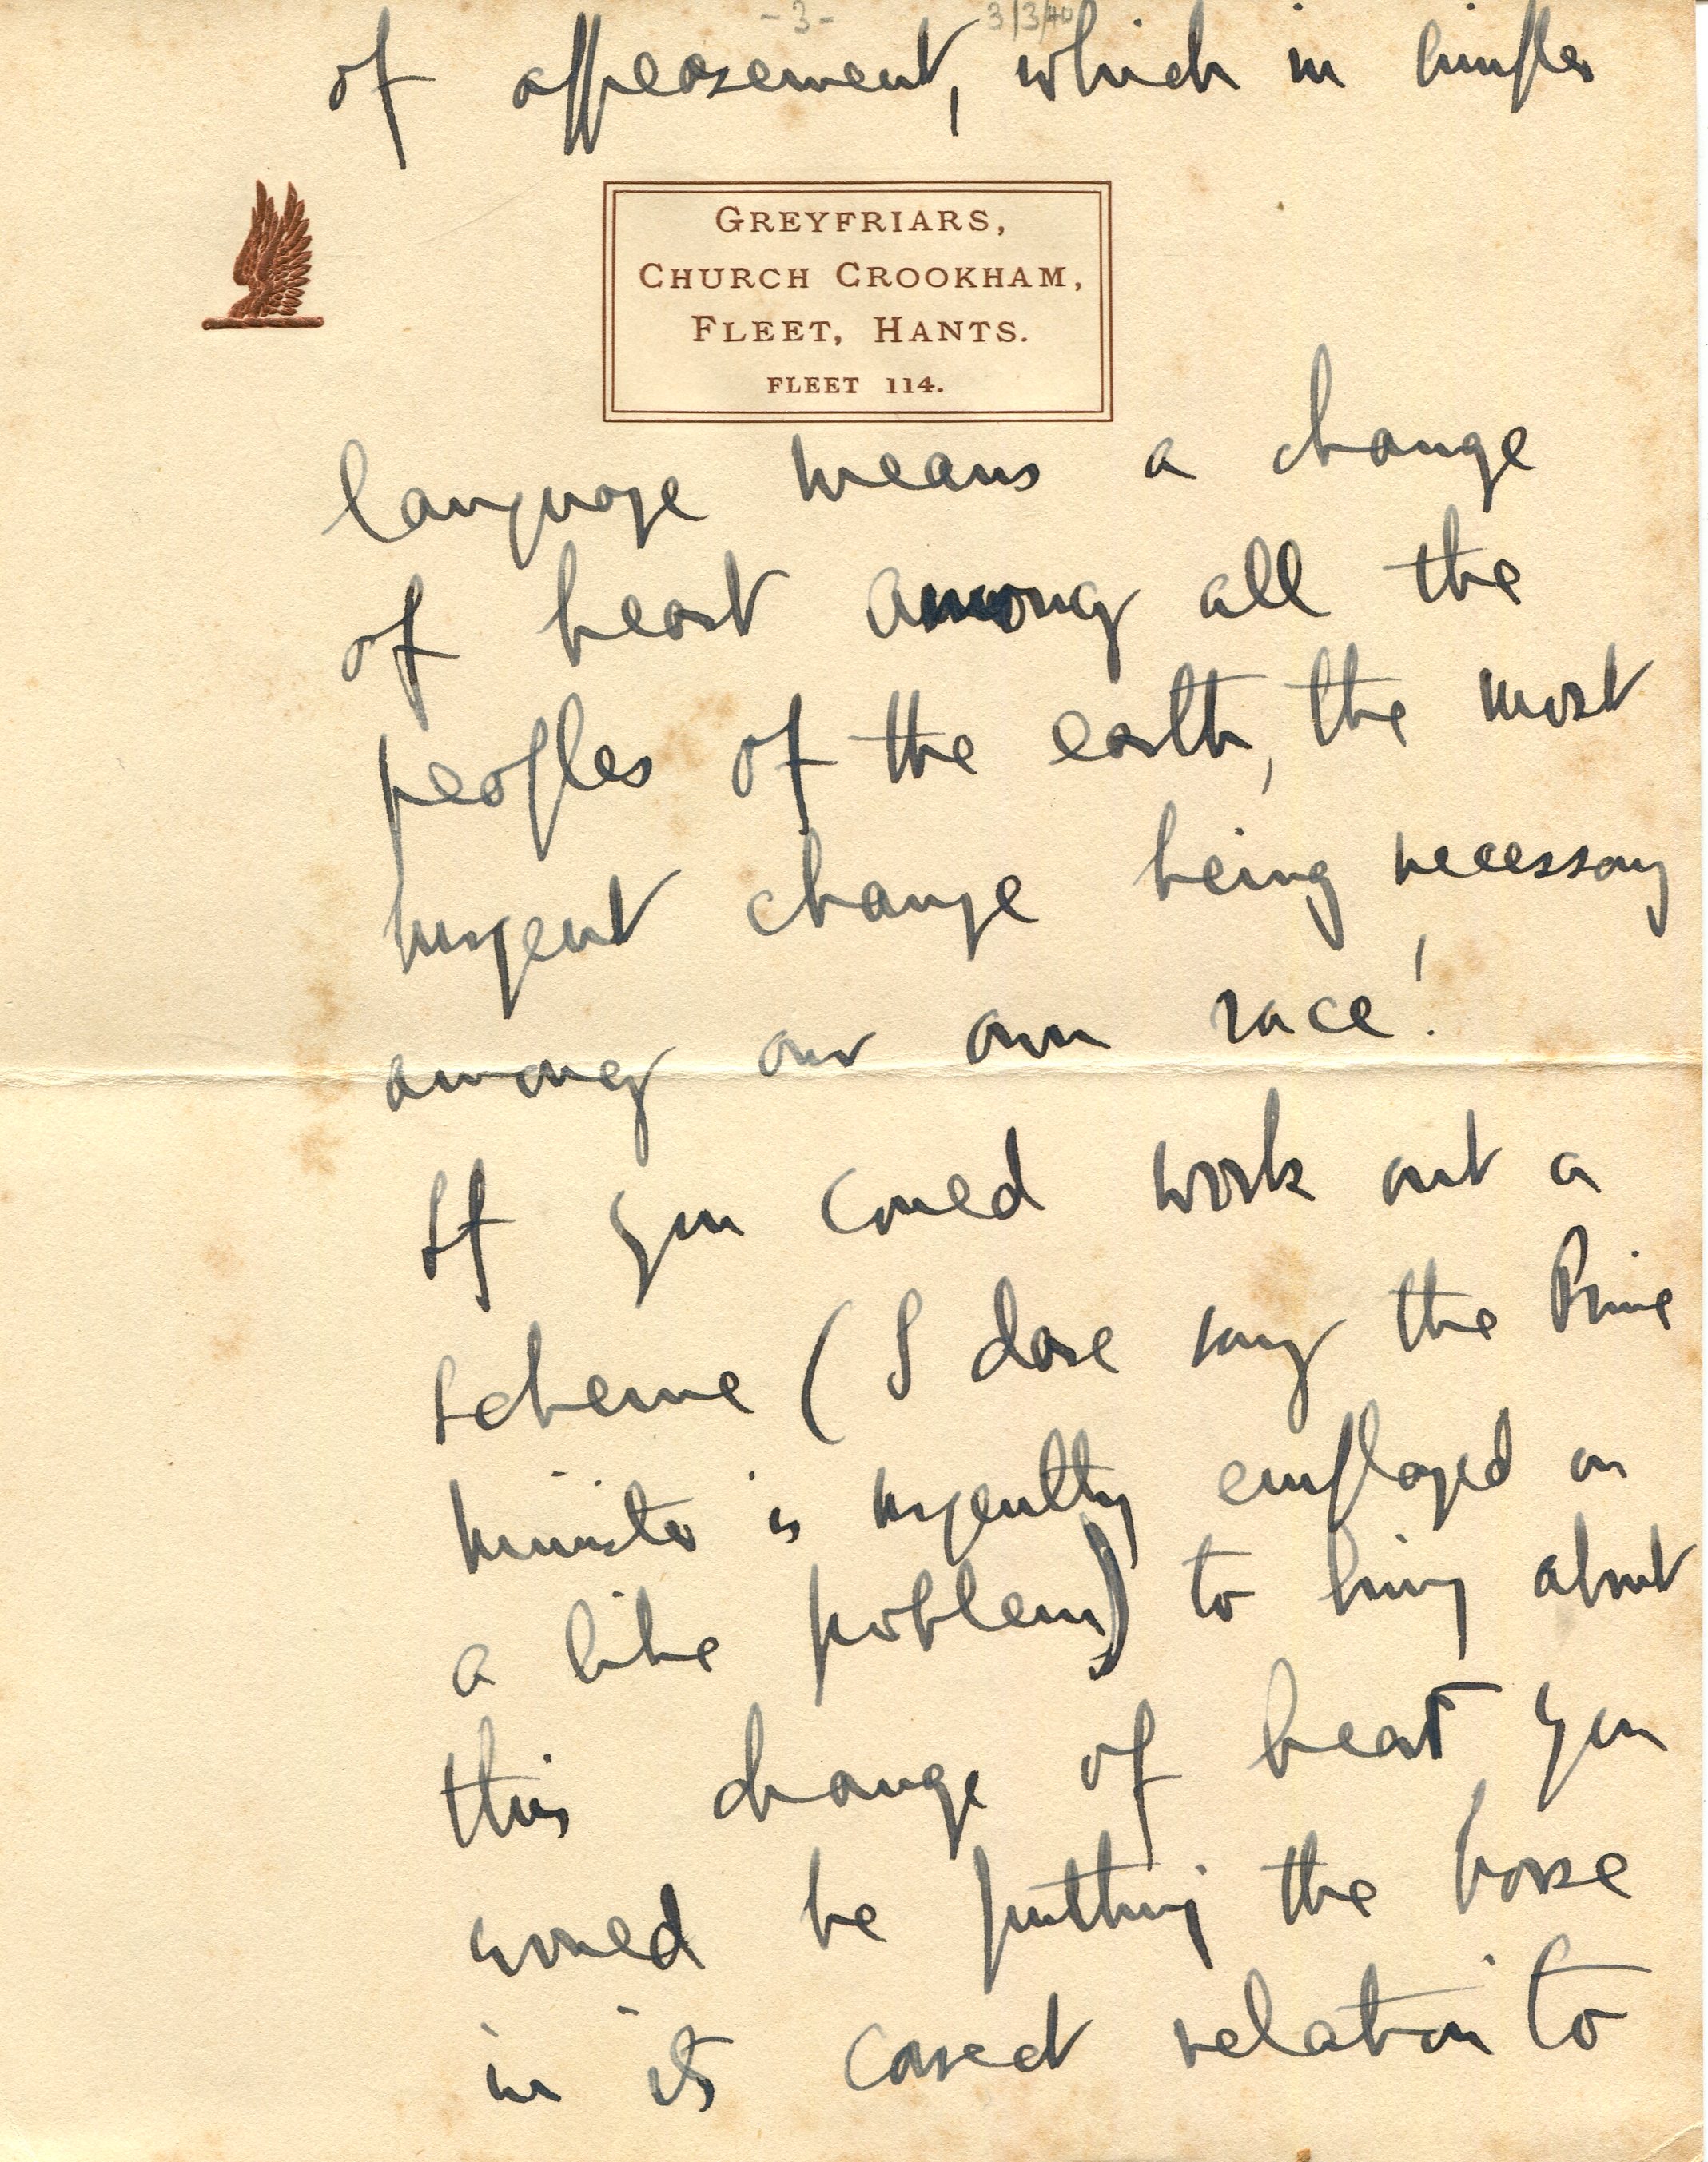 -3-
3/3/40
of appeasement, which in simpler
GREYFRIARS,
CHURCH CROOKHAM,
FLEET, HANTS.
FLEET 114.
language means a change
of heart among all the
peoples of the earth, the most
urgent change being necessary
among our own race!
If you could work out a
scheme (I dare say the Prime
Minister is urgently employed on
a like problem) to bring about
this change of heart you
would be putting the horse
in its correct relation to